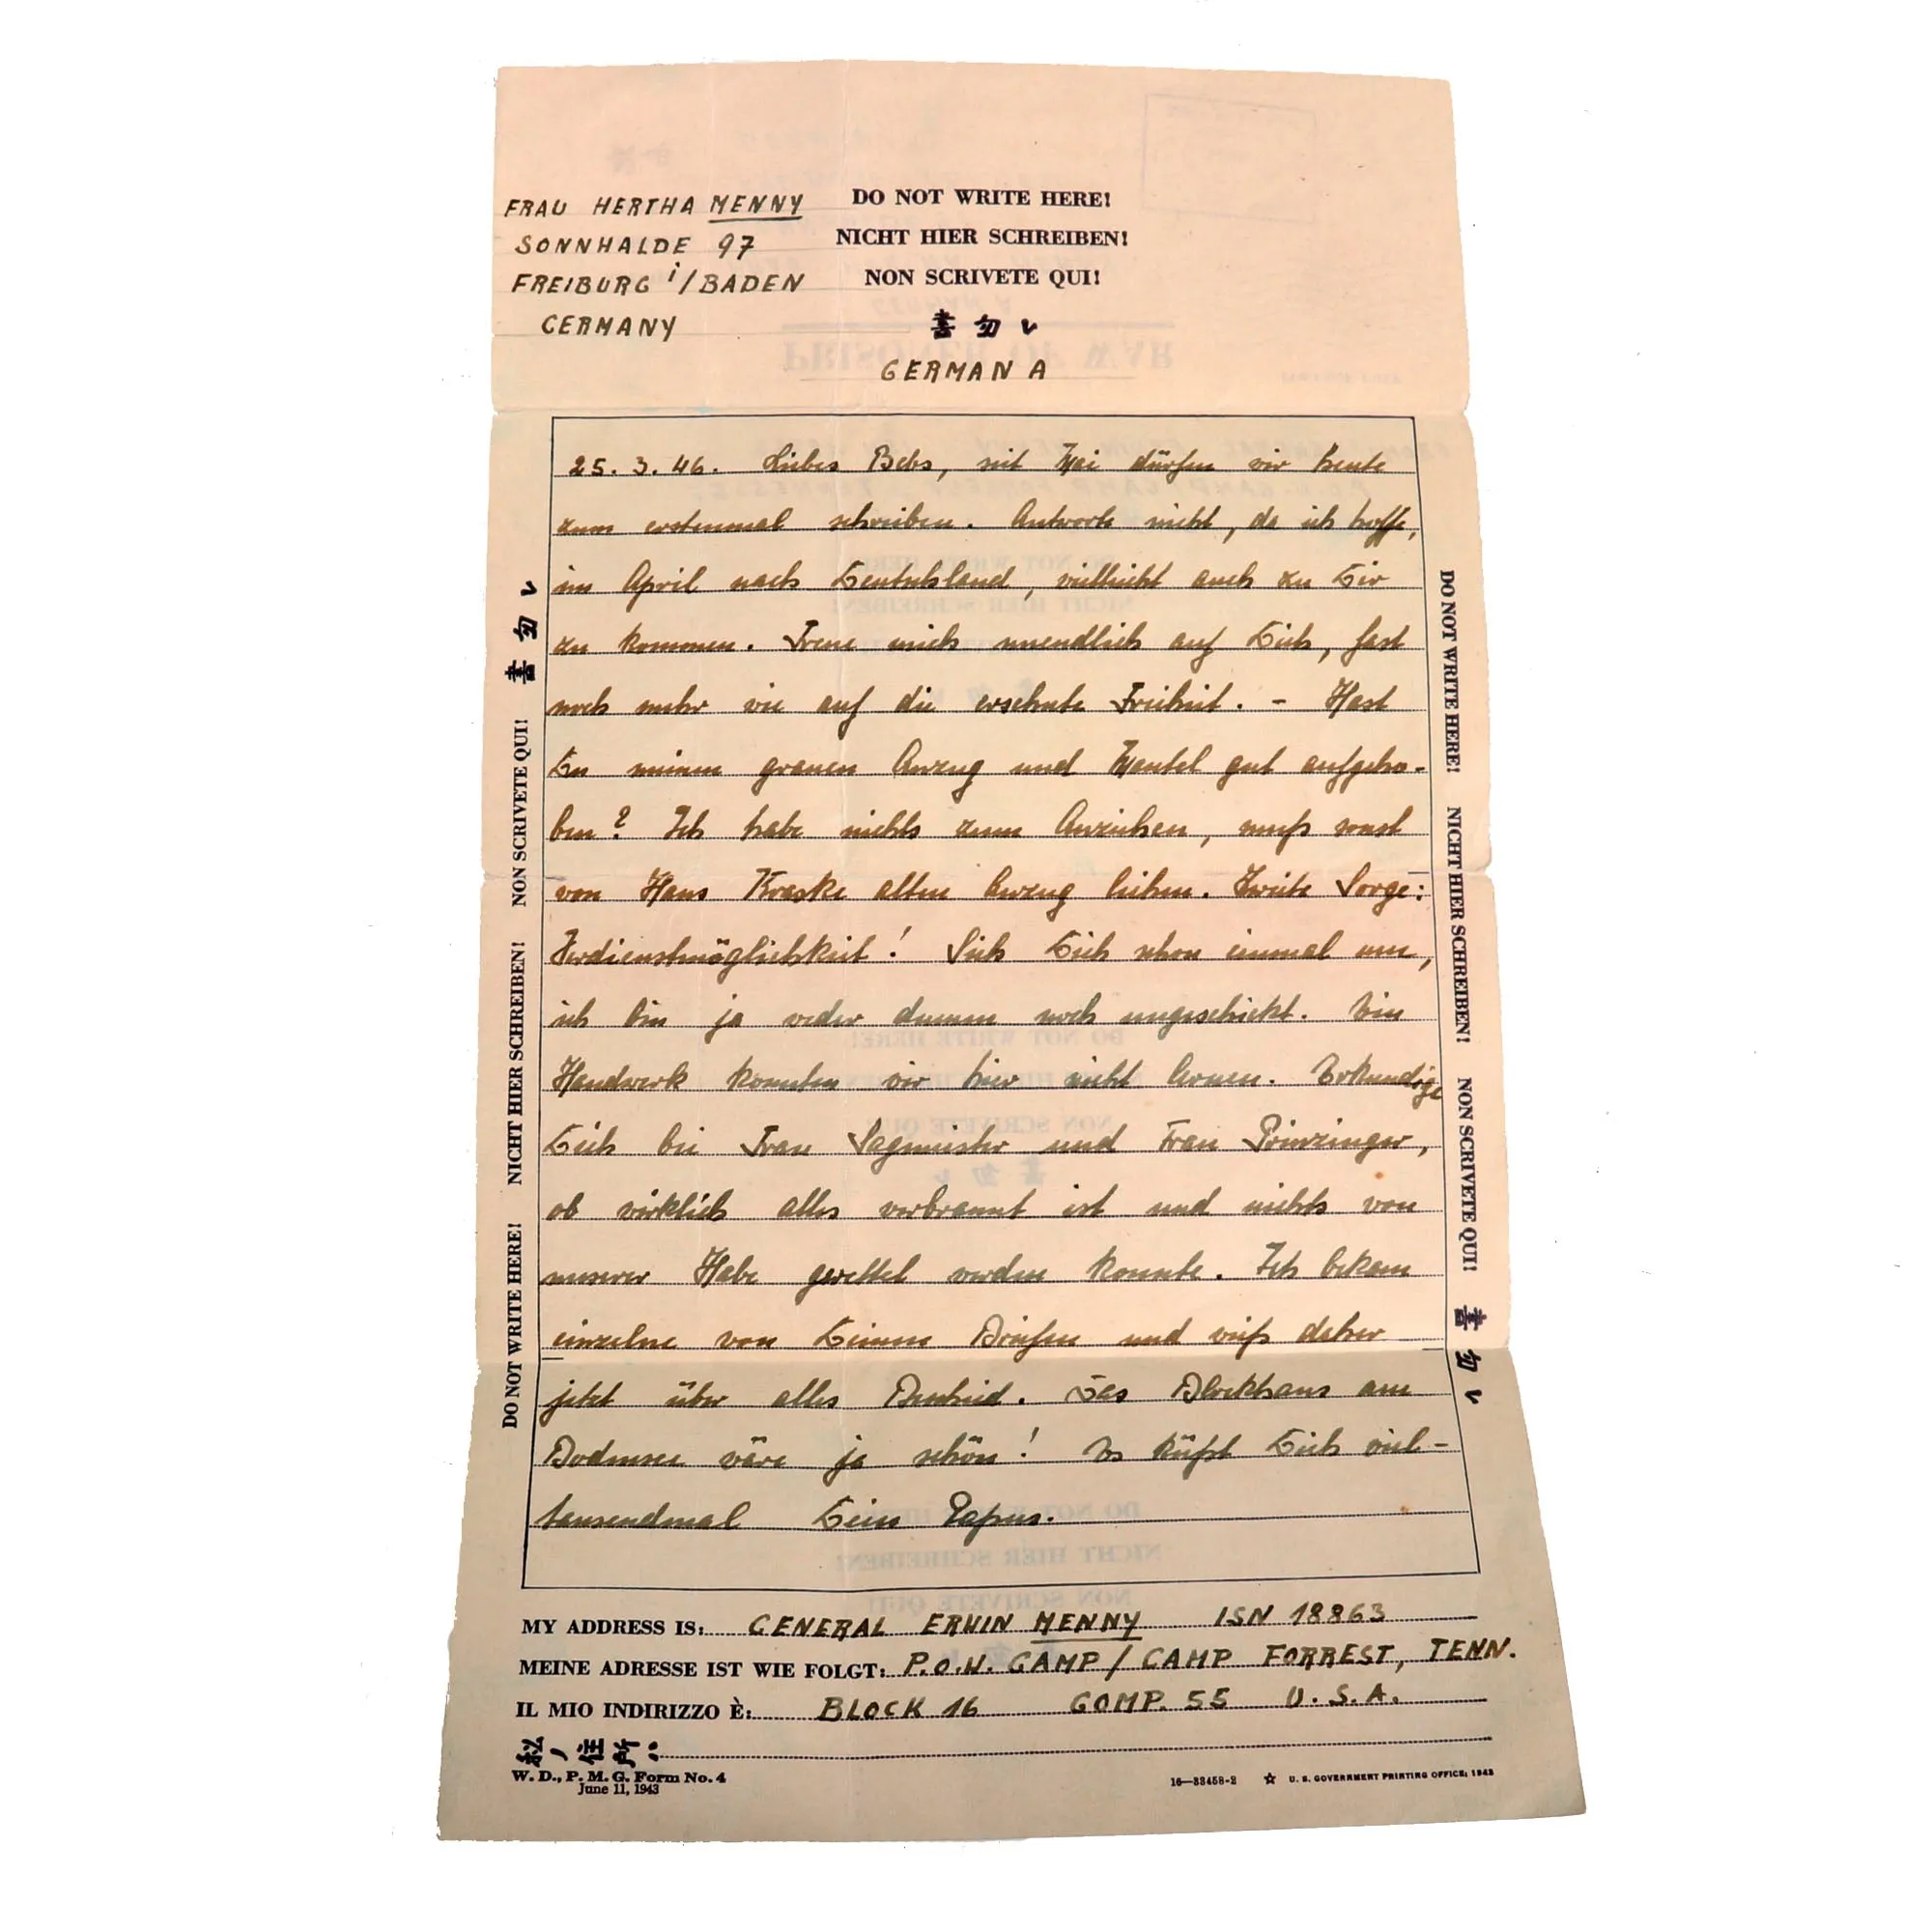 FRAU HERTHA MENNY
SONNHALDE 97
FREIBURG i/BADEN
GERMANY
DO NOT WRITE HERE!
NICHT HIER SCHREIBEN!
NON SCRIVETE QUI!
書勿レ
GERMAN A
25. 3. 46. Liebes Bebs, seit Mai dürfen wir heute
zum erstenmal schreiben. Antworte nicht, da ich hoffe,
im April nach Deutschland, vielleicht auch zu Dir
zu kommen. Freue mich unendlich auf Dich, fast
noch mehr wie auf die ersehnte Freiheit. - Hast
Du meinen grauen Anzug und Mantel gut aufgeho-
ben? Ich habe nichts zum Anziehen, muß sonst
von Hans Kraske alten Anzug leihen. Zweite Sorge:
Verdienstmöglichkeit! Sieh Dich schon einmal um,
ich bin ja weder dumm noch ungeschickt. Ein
Handwerk konnten wir hier nicht lernen. Erkundige
Dich bei Frau Sagmeister und Frau Prinzinger,
ob wirklich alles verbrannt ist und nichts von
unserer Habe gerettet werden konnte. Ich bekam
einzelne von Deinen Briefen und weiß daher
jetzt über alles Bescheid. Das Blockhaus am
Bodensee wäre ja schön! Es küßt Dich viel-
tausendmal Dein Papus.
DO NOT WRITE HERE! NICHT HIER SCHREIBEN! NON SCRIVETE QUI! 書勿レ
DO NOT WRITE HERE! NICHT HIER SCHREIBEN! NON SCRIVETE QUI! 書勿レ
MY ADDRESS IS: GENERAL ERWIN MENNY ISN 18863
MEINE ADRESSE IST WIE FOLGT: P.O.W. CAMP / CAMP FORREST, TENN.
IL MIO INDIRIZZO È: BLOCK 16 COMP. 55 U.S.A.
私ノ住所ハ
W. D., P. M. G. Form No. 4
June 11, 1943
16—33458-2 ☆ U. S. GOVERNMENT PRINTING OFFICE: 1943